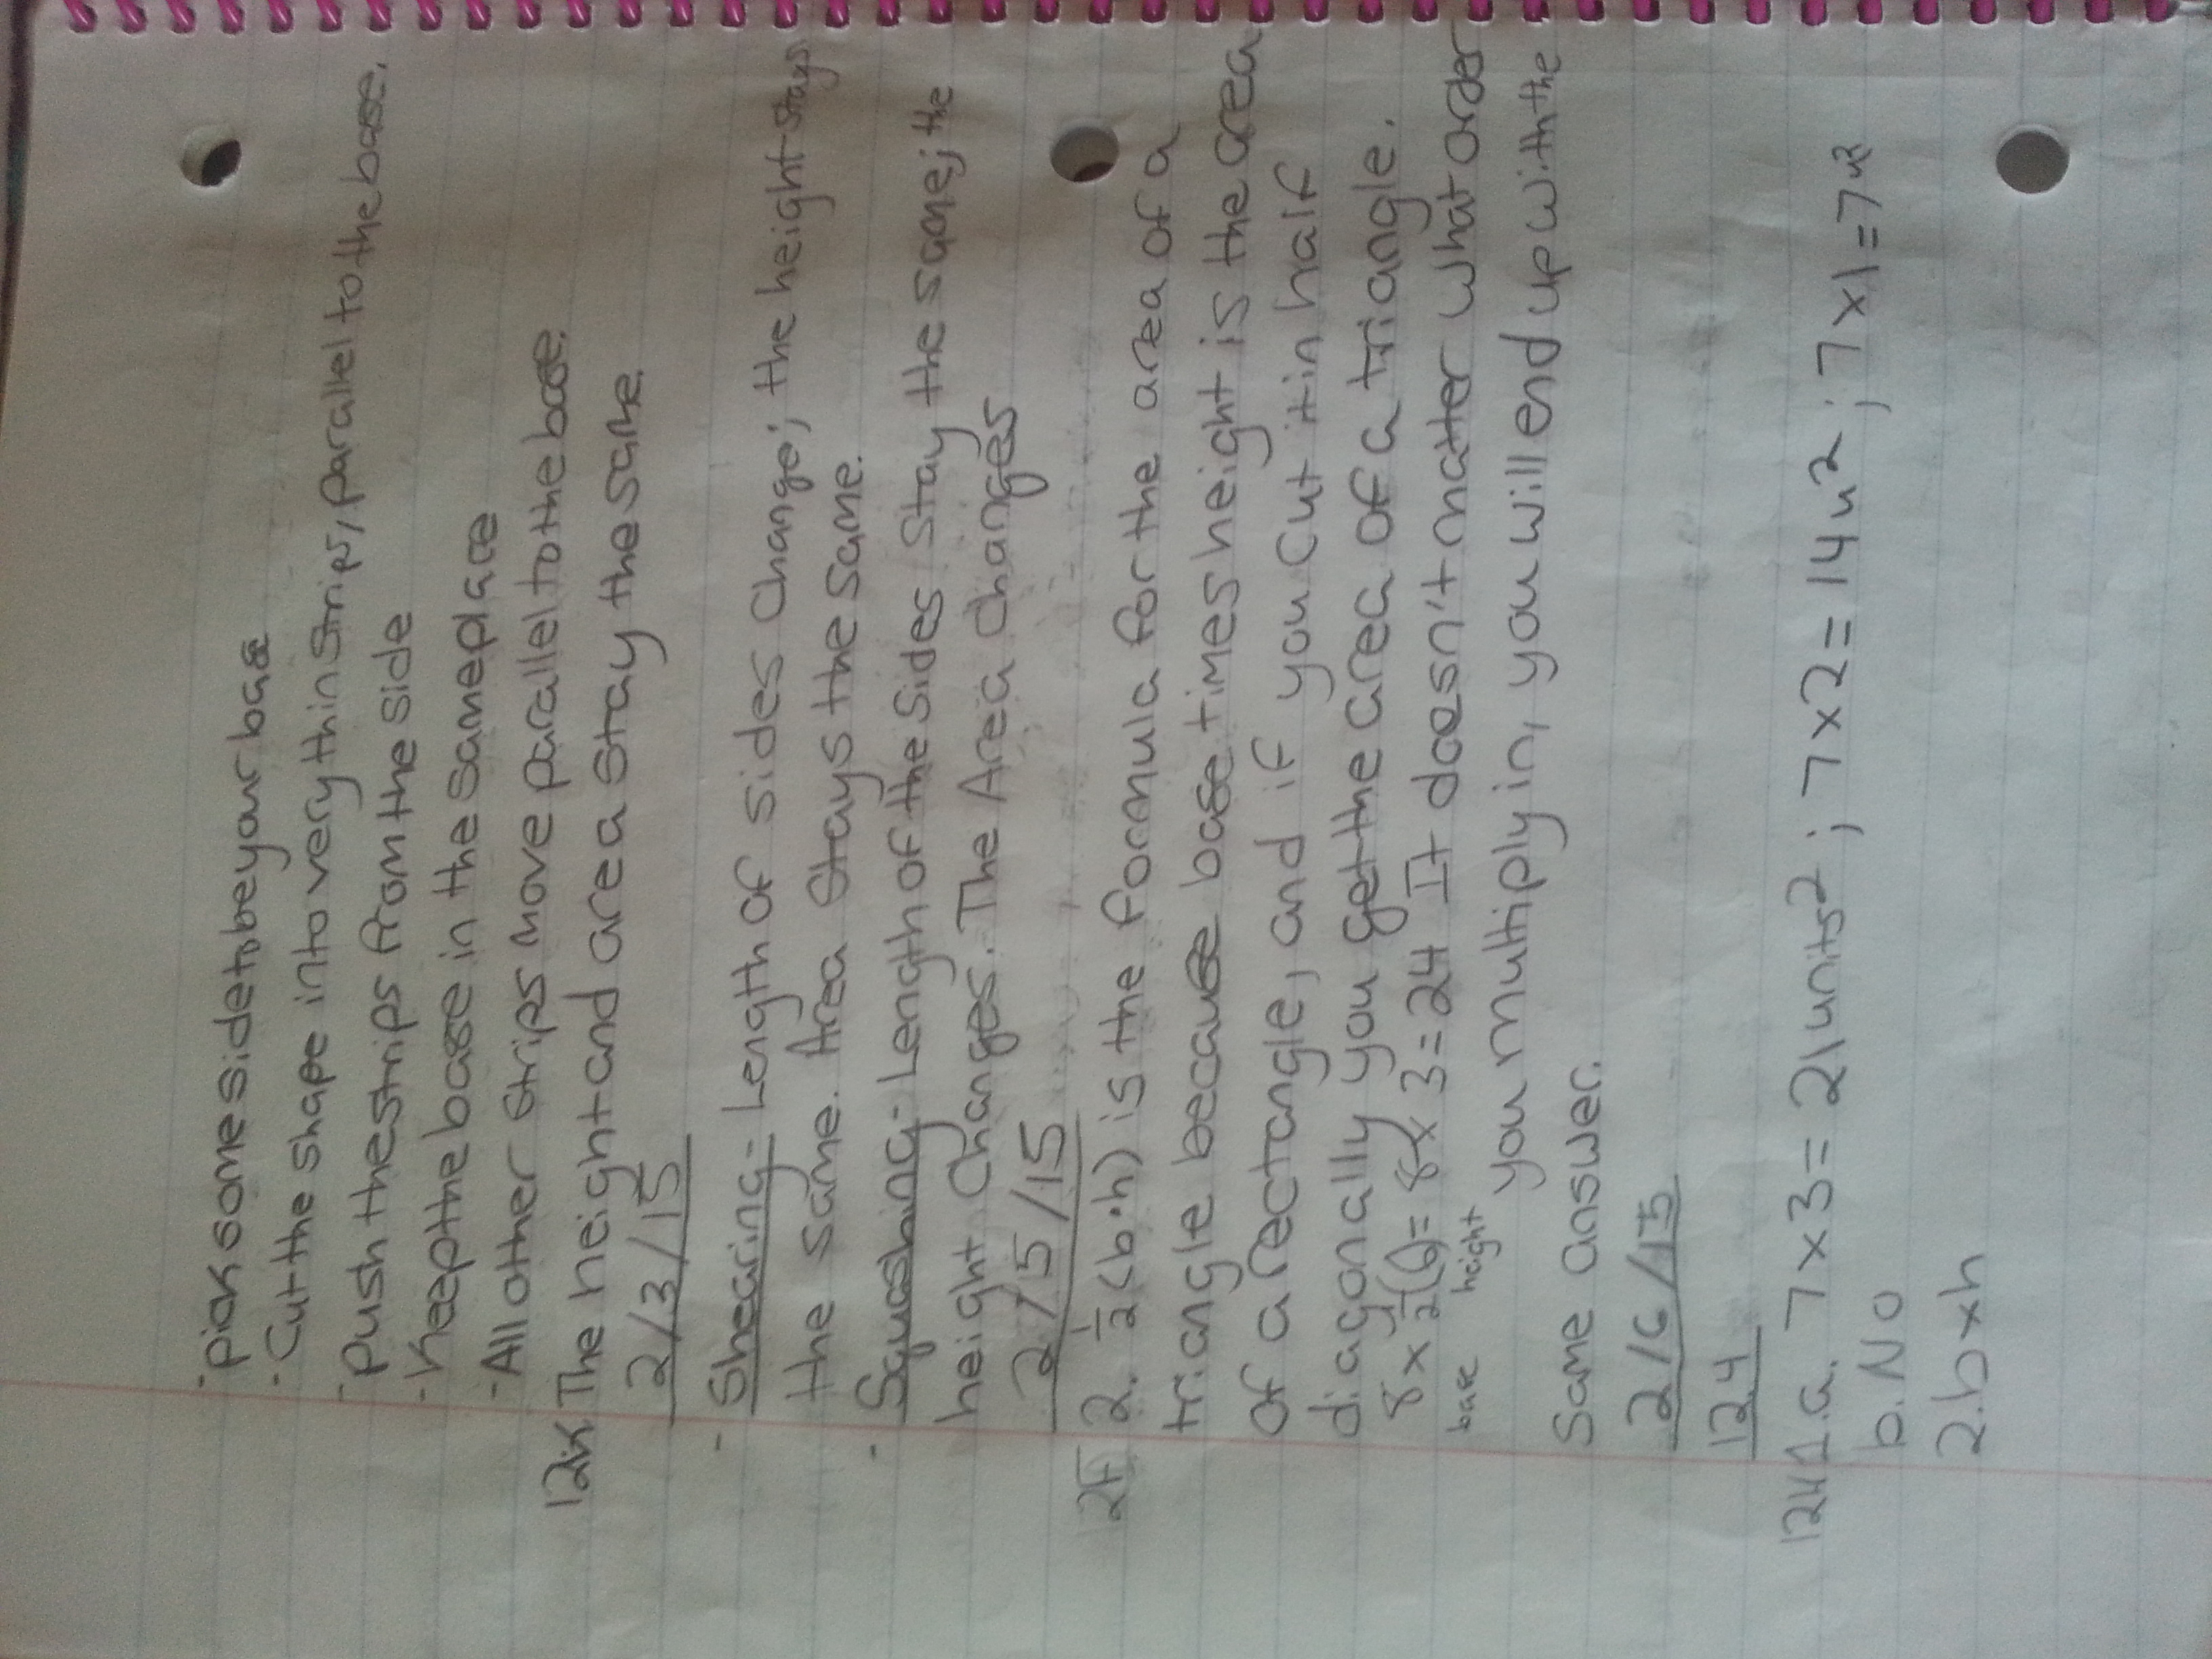 - Pick some side to be your base
- Cut the shape into very thin strips, parallel to the base.
- Push the strips from the side
- Keep the base in the same place
- All other strips move parallel to the base.
The height and area stay the same.
2/3/15
- Shearing- Length of sides change; the height stays
the same. Area stays the same.
- Squashing- Length of the sides stay the same; the
height changes. The Area changes
2/15/15
2. 1/2(b·h) is the formula for the area of a
triangle because base times height is the area
of a rectangle, and if you cut it in half
diagonally you get the area of a triangle.
8 x 1/2(6) = 8 x 3 = 24 It doesn't matter what order
base height you multiply in, you will end up with the
same answer.
2/6/15
12.4
1.a. 7x3 = 21 units²; 7x2 = 14u²; 7x1 = 7u²
b. No
2. bxh